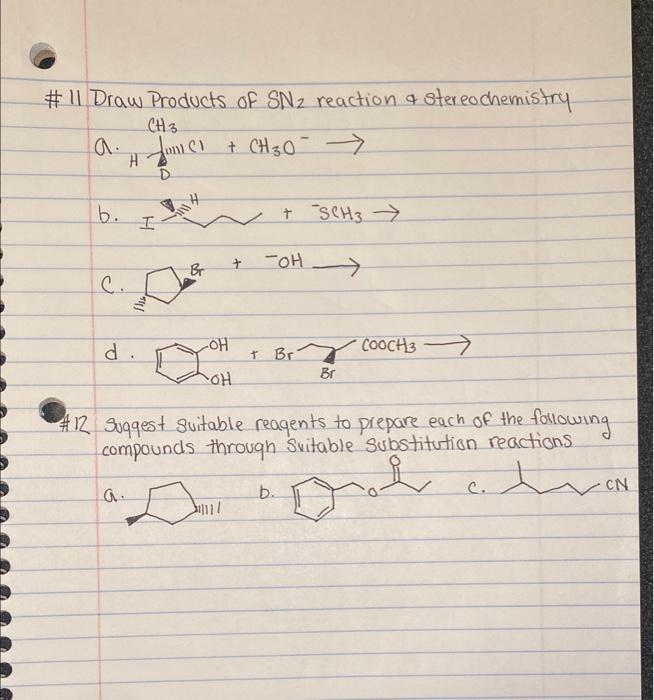 #11 Draw Products of SN2 reaction & stereochemistry
CH3
a. H Cl + CH3O⁻ →
D
b. I H + ⁻SCH3 →
c. Br + ⁻OH →
d. OH + Br COOCH3 →
OH Br
#12 Suggest suitable reagents to prepare each of the following
compounds through suitable substitution reactions
a. b. O O c. CN